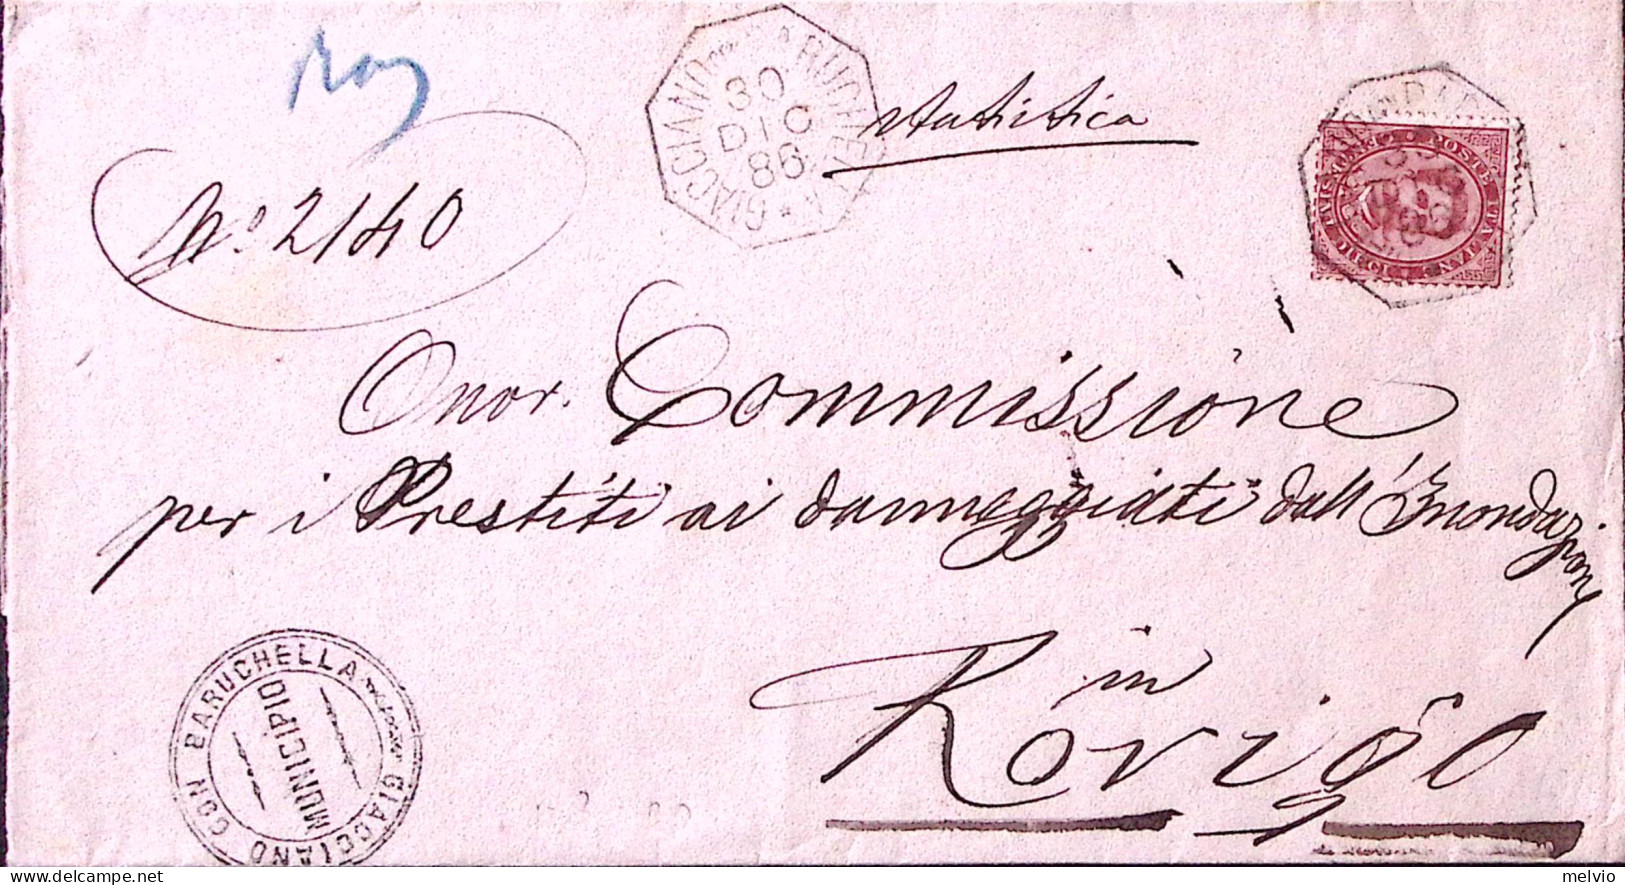 GIACCIANO BARUCHELLA
30
DIC
86
Statistica
N.o 2140
POSTE ITALIANE
Onor. Commissione
per i Prestiti ai danneggiati dall'Inondazione
in
Rovigo
GIACCIANO CON BARUCHELLA
MUNICIPIO
delcampe.net
melvio